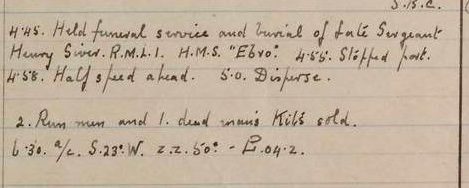 S.B.C.
4.45. Held funeral service and burial of Late Sergeant
Henry Siver. R.M.L.I. H.M.S. "Ebro". 4.55. Stopped port.
4.58. Half speed ahead. 5.0. Disperse.
2. Run men and 1. dead man's Kits sold.
6.30. a/c. S.23°.W. Z.Z. 50° - P.04.2.